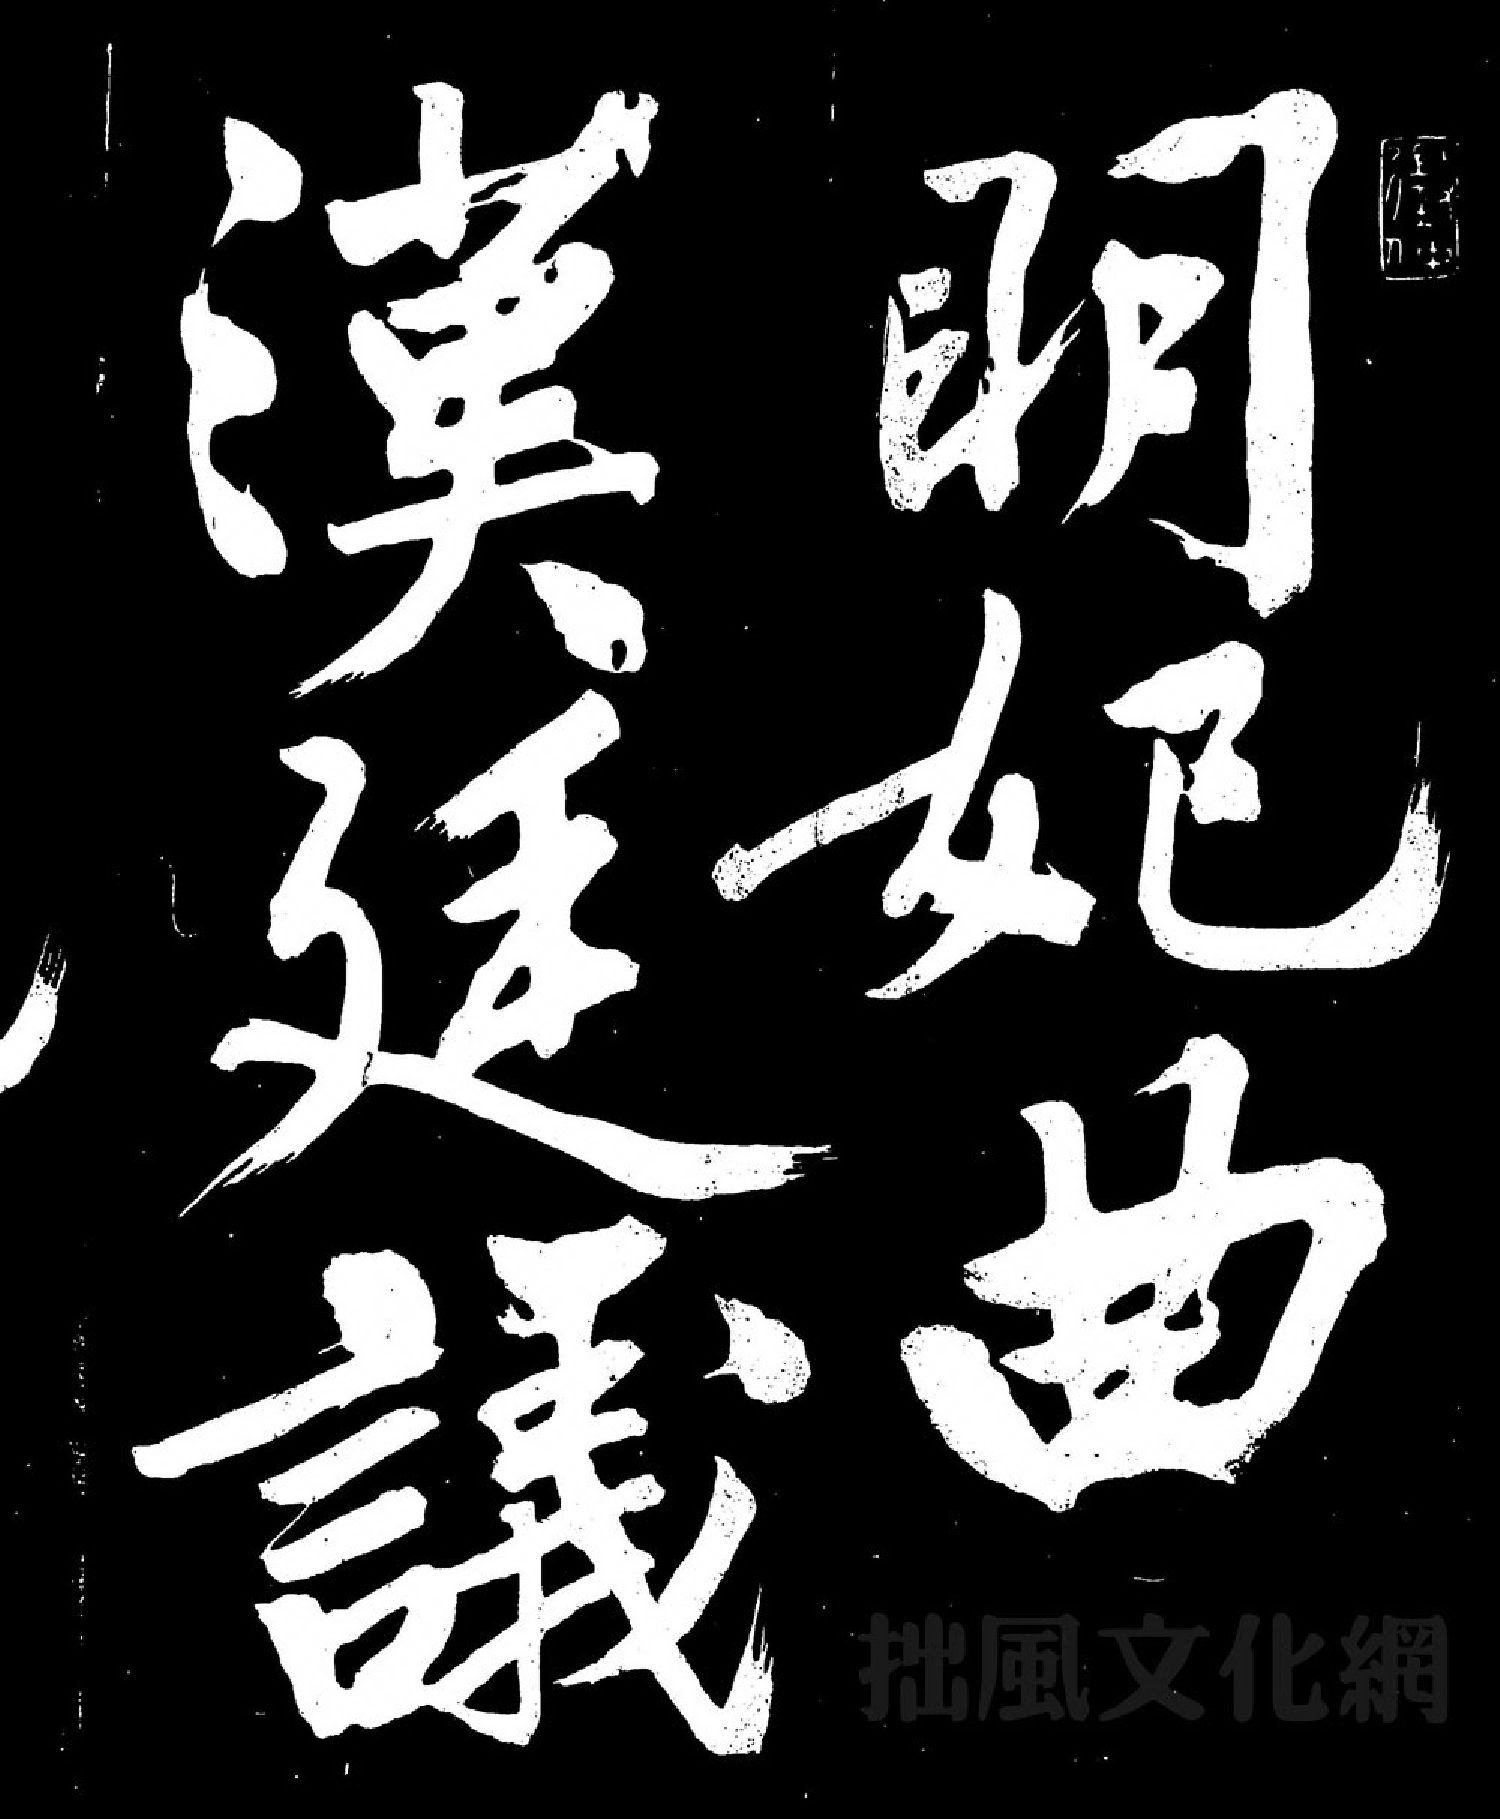 明妃曲
漢廷議
拙風文化網